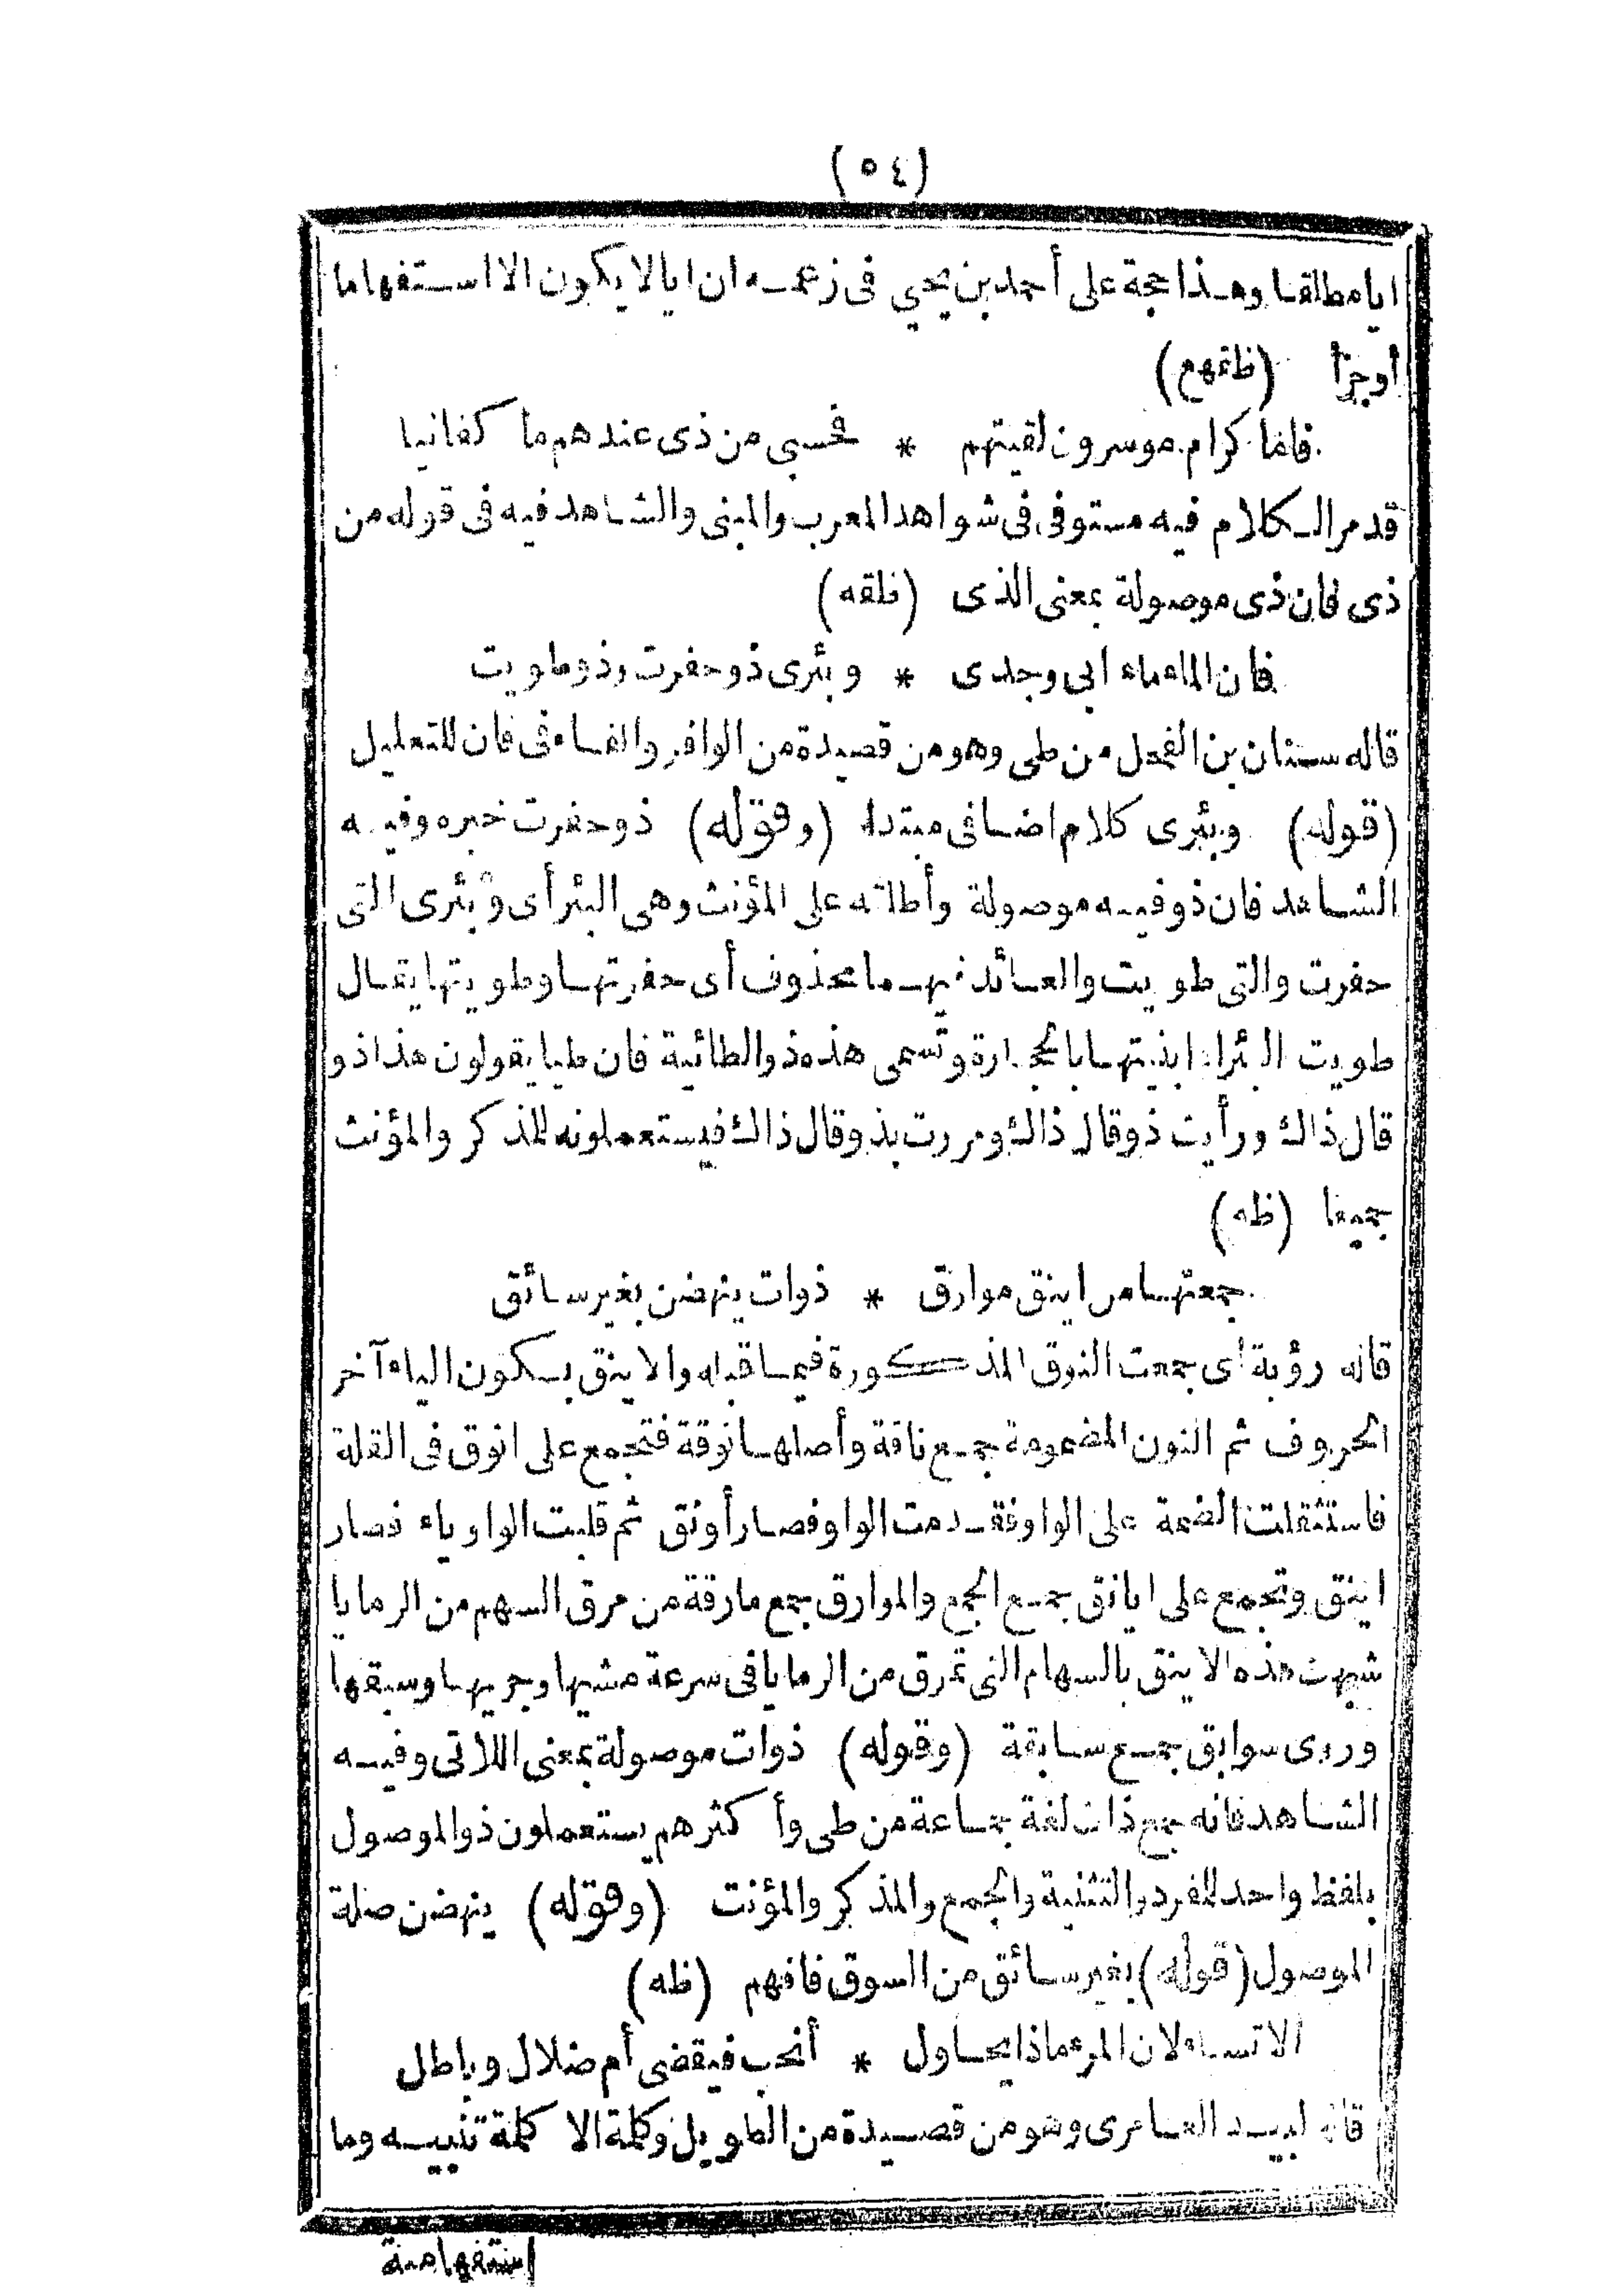 (٥٤)
ايا مطلقا وهذا حجة على أحمد بن يحيي فى زعمه ان ايا لا يكون الا استفهاما
أو جزأ (ظقهع)
فاما كرام موسرون لقيتهم * فحسبى من ذى عندهم ما كفانيا
قد مر الكلام فيه مستوفى فى شواهد المعرب والمبنى والشاهد فيه فى قوله من
ذى فان ذى موصولة بمعنى الذى (ظقه)
فان الماء ماء ابى وجدى * وبئرى ذو حفرت وذو طويت
قاله سنان بن الفحل من طى وهو من قصيدة من الوافر والفاء فى فان للتعليل
(قوله) وبئرى كلام اضافى مبتدا (وقوله) ذو حفرت خبره وفيه
الشاهد فان ذو فيه موصولة وأطلقه على المؤنث وهى البئر أى وبئرى التى
حفرت والتى طويت والعائد فيهما محذوف أى حفرتها وطويتها يقال
طويت البئر اذا بنيتها بالحجارة وتسمى هذه ذو الطائية فان طيا يقولون هذا ذو
قال ذاك ورأيت ذو قال ذاك ومررت بذو قال ذاك فيستعملونه للمذكر والمؤنث
جميعا (ظه)
جمعتها من اينق موارق * ذوات ينهضن بغير سائق
قاله رؤبة اى جمعت النوق المذكورة فيما قبله والاينق بسكون الياء آخر
الحروف ثم النون المضمومة جمع ناقة وأصلها نوقة فتجمع على انوق فى القلة
فاستثقلت الضمة على الواو فقدمت الواو فصار أونق ثم قلبت الواو ياء فصار
اينق وتجمع على ايانق جمع الجمع والموارق جمع مارقة من مرق السهم من الرمايا
شبهت هذه الاينق بالسهام التى تمرق من الرمايا فى سرعة مشيها وجريها وسبقها
وروى سوابق جمع سابقة (وقوله) ذوات موصولة بمعنى اللاتى وفيه
الشاهد فانه جمع ذات لغة جماعة من طى وأكثرهم يستعملون ذو الموصول
بلفظ واحد للمفرد والتثنية والجمع والمذكر والمؤنت (وقوله) ينهضن صلة
الموصول (قوله) بغير سائق من السوق فافهم (ظه)
الا تسألان المرء ماذا يحاول * أنحب فيقضى أم ضلال وباطل
قاله لبيد العامرى وهو من قصيدة من الطويل وكلمة الا كلمة تنبيه وما
استفهامية